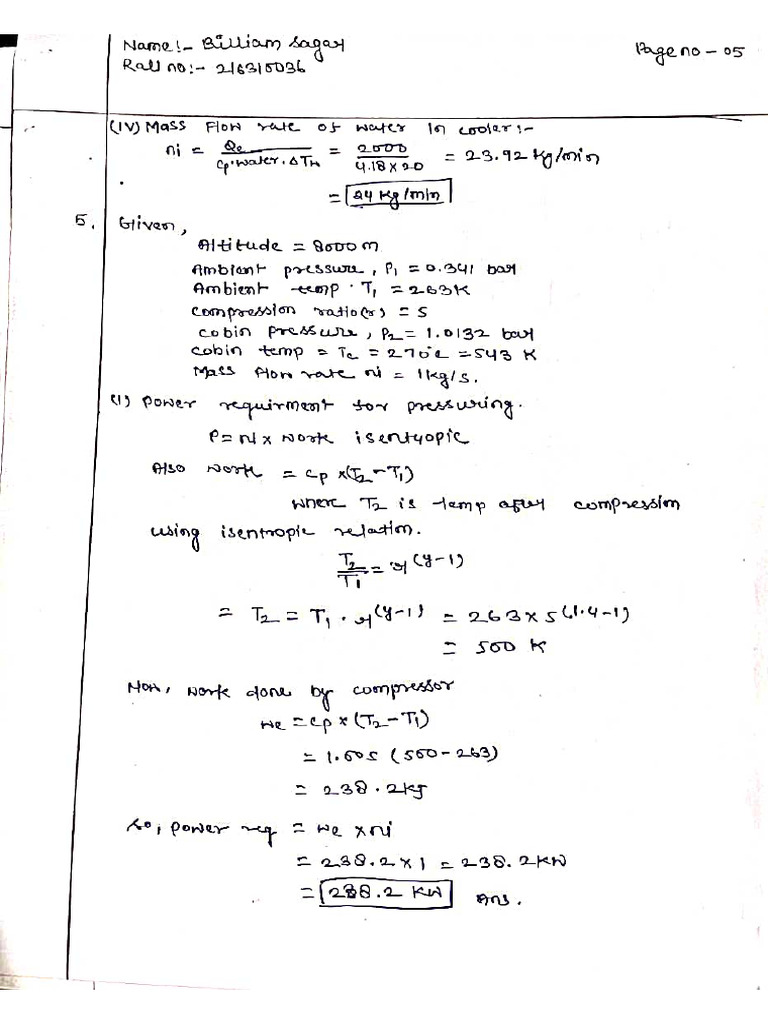 Name:- Billiam Sagar
Page no - 05
Roll no:- 216315036
(IV) Mass Flow rate of water in cooler:-
ṁ = Qe / Cp.water.ΔTH = 2000 / 4.18 x 20 = 23.92 kg/min
= 24 kg/min
5. Given,
Altitude = 8000 m
Ambient pressure, P1 = 0.341 bar
Ambient temp. T1 = 263K
compression ratio(r) = 5
cobin pressure, P2 = 1.0132 bar
cobin temp = Tc = 270°C = 543 K
Mass flow rate ṁ = 1kg/s.
(1) Power requirment for pressuring.
P = ṁ x work isentropic
Also work = Cp x(T2-T1)
where T2 is temp after compression
using isentropic relation.
T2/T1 = r(γ-1)
= T2 = T1 . r(γ-1) = 263 x 5(1.4-1)
= 500 K
Now, work done by compressor
we = cp x (T2-T1)
= 1.005 (500-263)
= 238.2kJ
So, power req = we x ṁ
= 238.2 x 1 = 238.2KW
= 238.2 KW Ans.